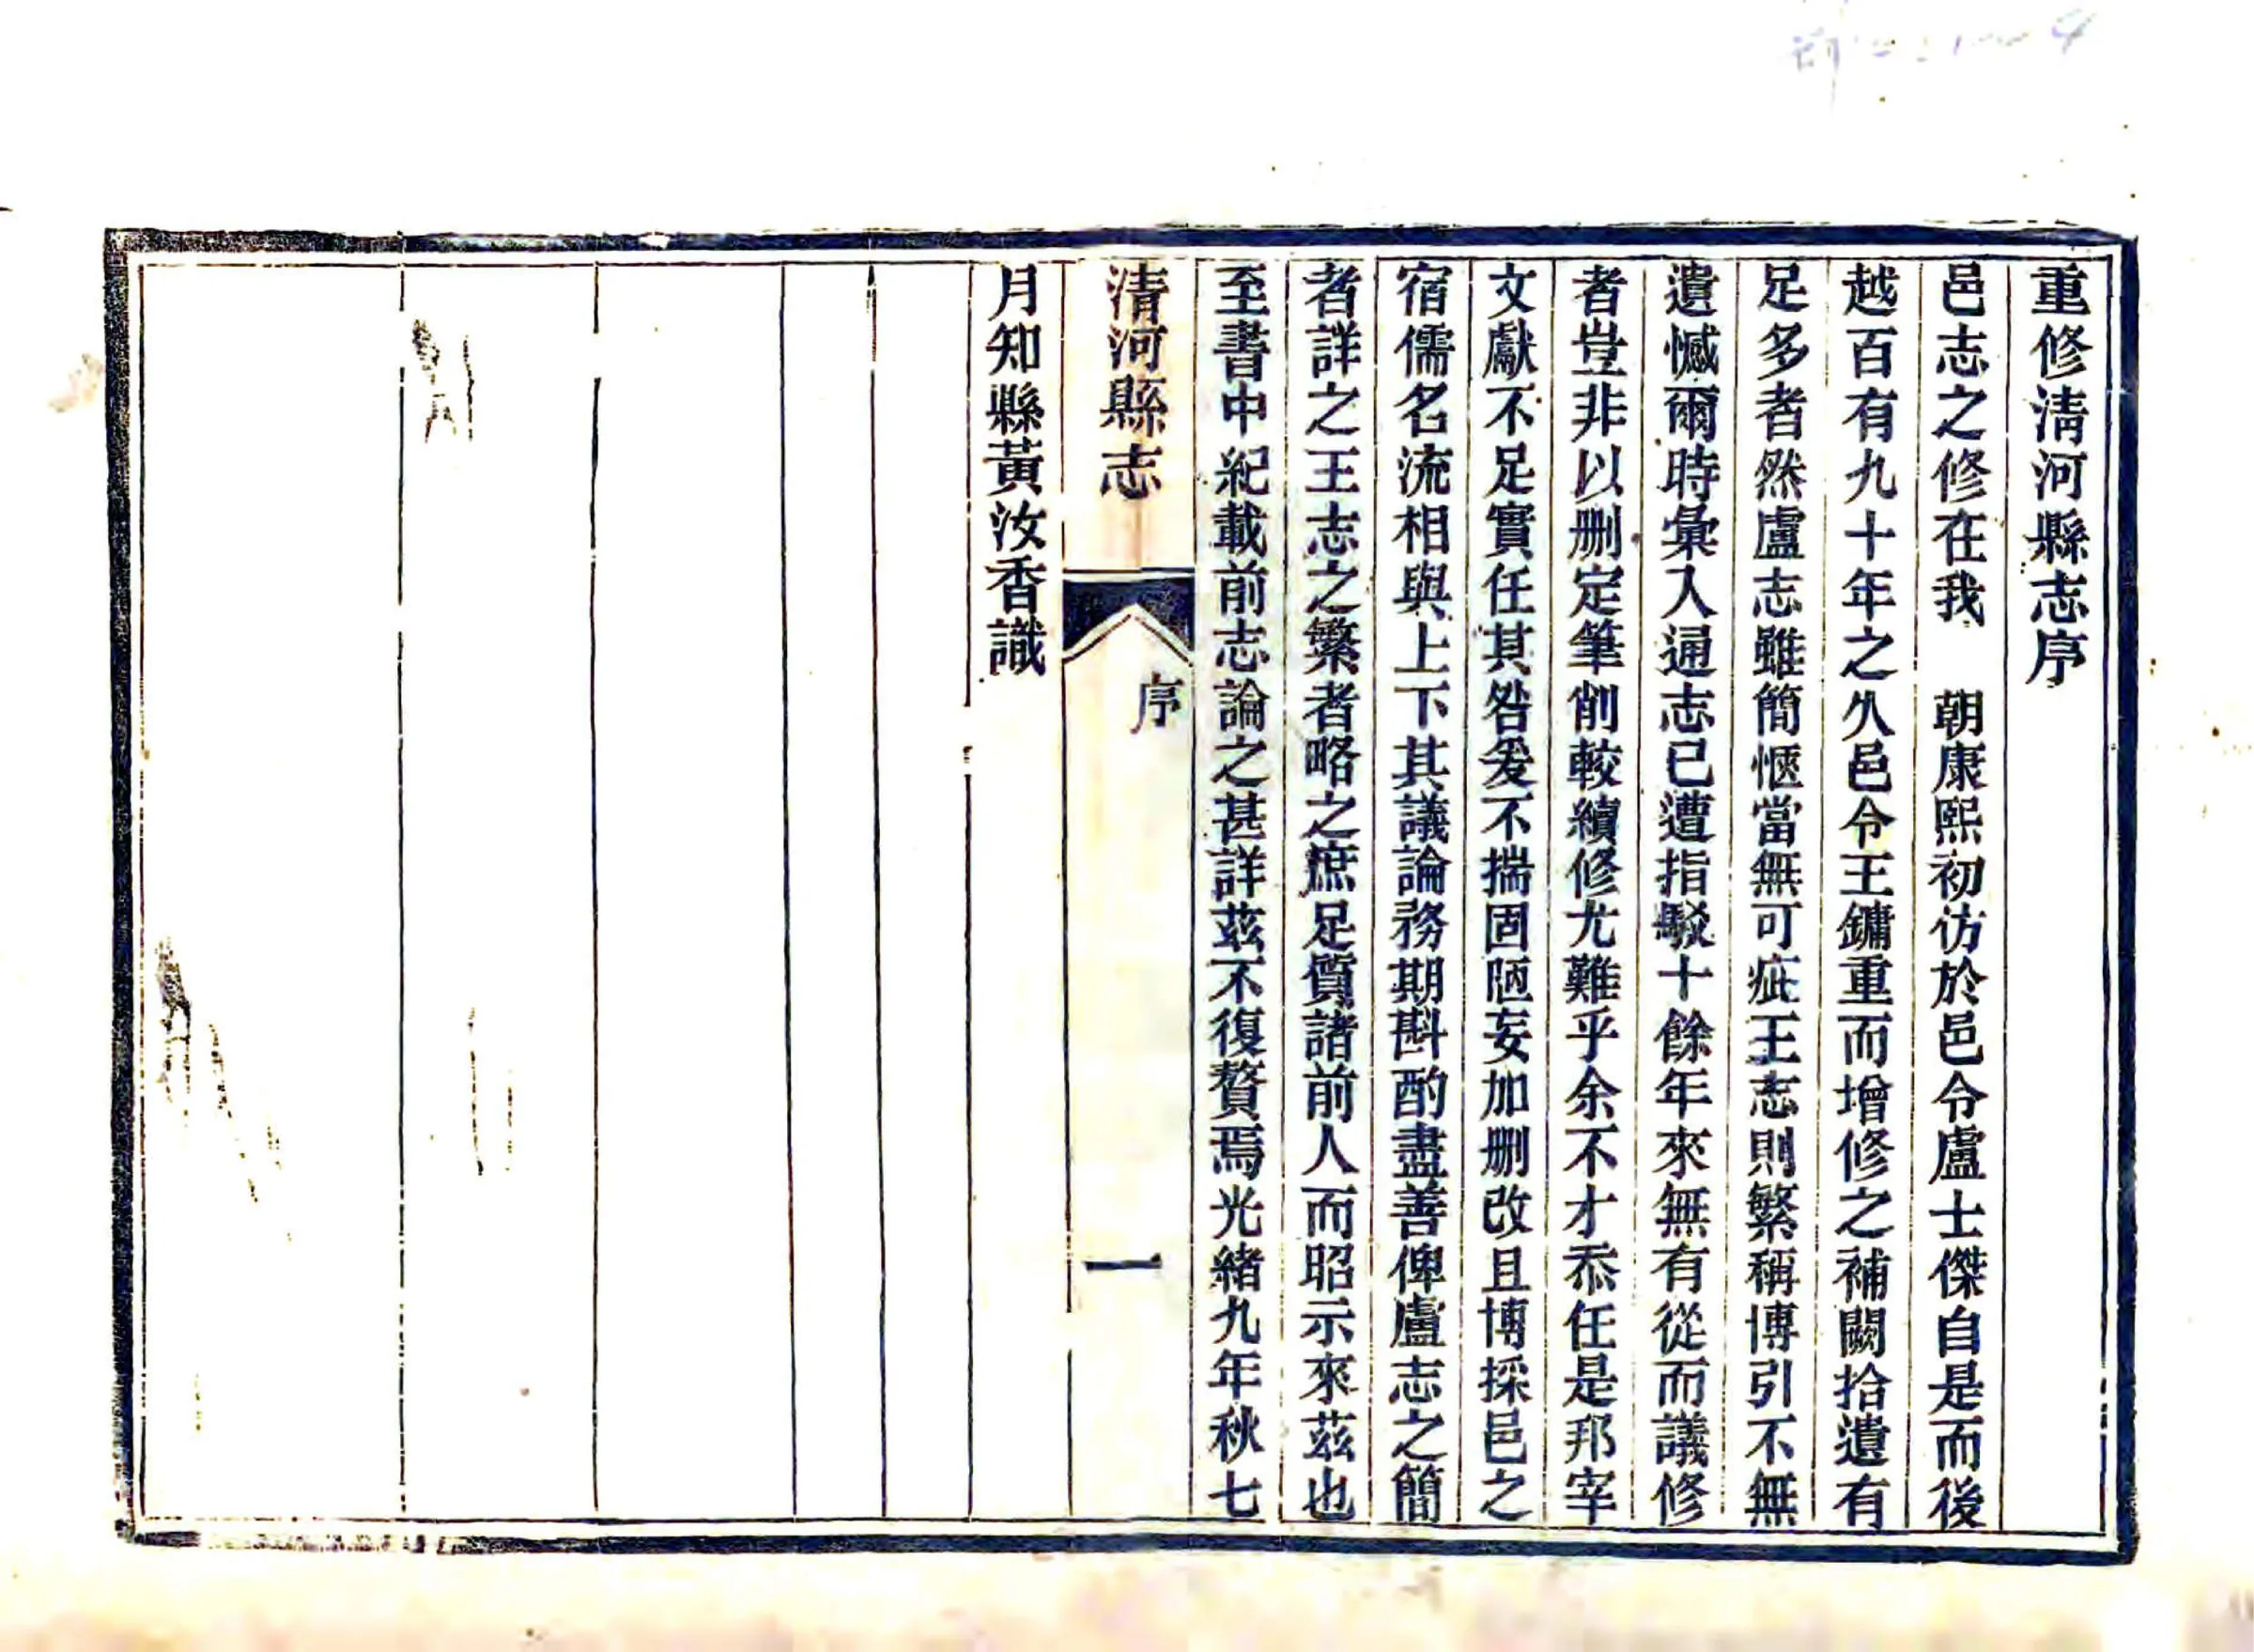 重修清河縣志序
邑志之修在我　朝康熙初仿於邑令盧士傑自是而後
越百有九十年之久邑令王鏞重而增修之補闕拾遺有
足多者然盧志雖簡愜當無可疵王志則繁稱博引不無
遺憾爾時彙入通志已遭指駁十餘年來無有從而議修
者豈非以刪定筆削較續修尤難乎余不才忝任是邦宰
文獻不足實任其咎爰不揣固陋妄加刪改且博採邑之
宿儒名流相與上下其議論務期斟酌盡善俾盧志之簡
者詳之王志之繁者略之庶足質諸前人而昭示來茲也
至書中紀載前志論之甚詳茲不復贅焉光緒九年秋七
清河縣志
序
一
月知縣黃汝香識